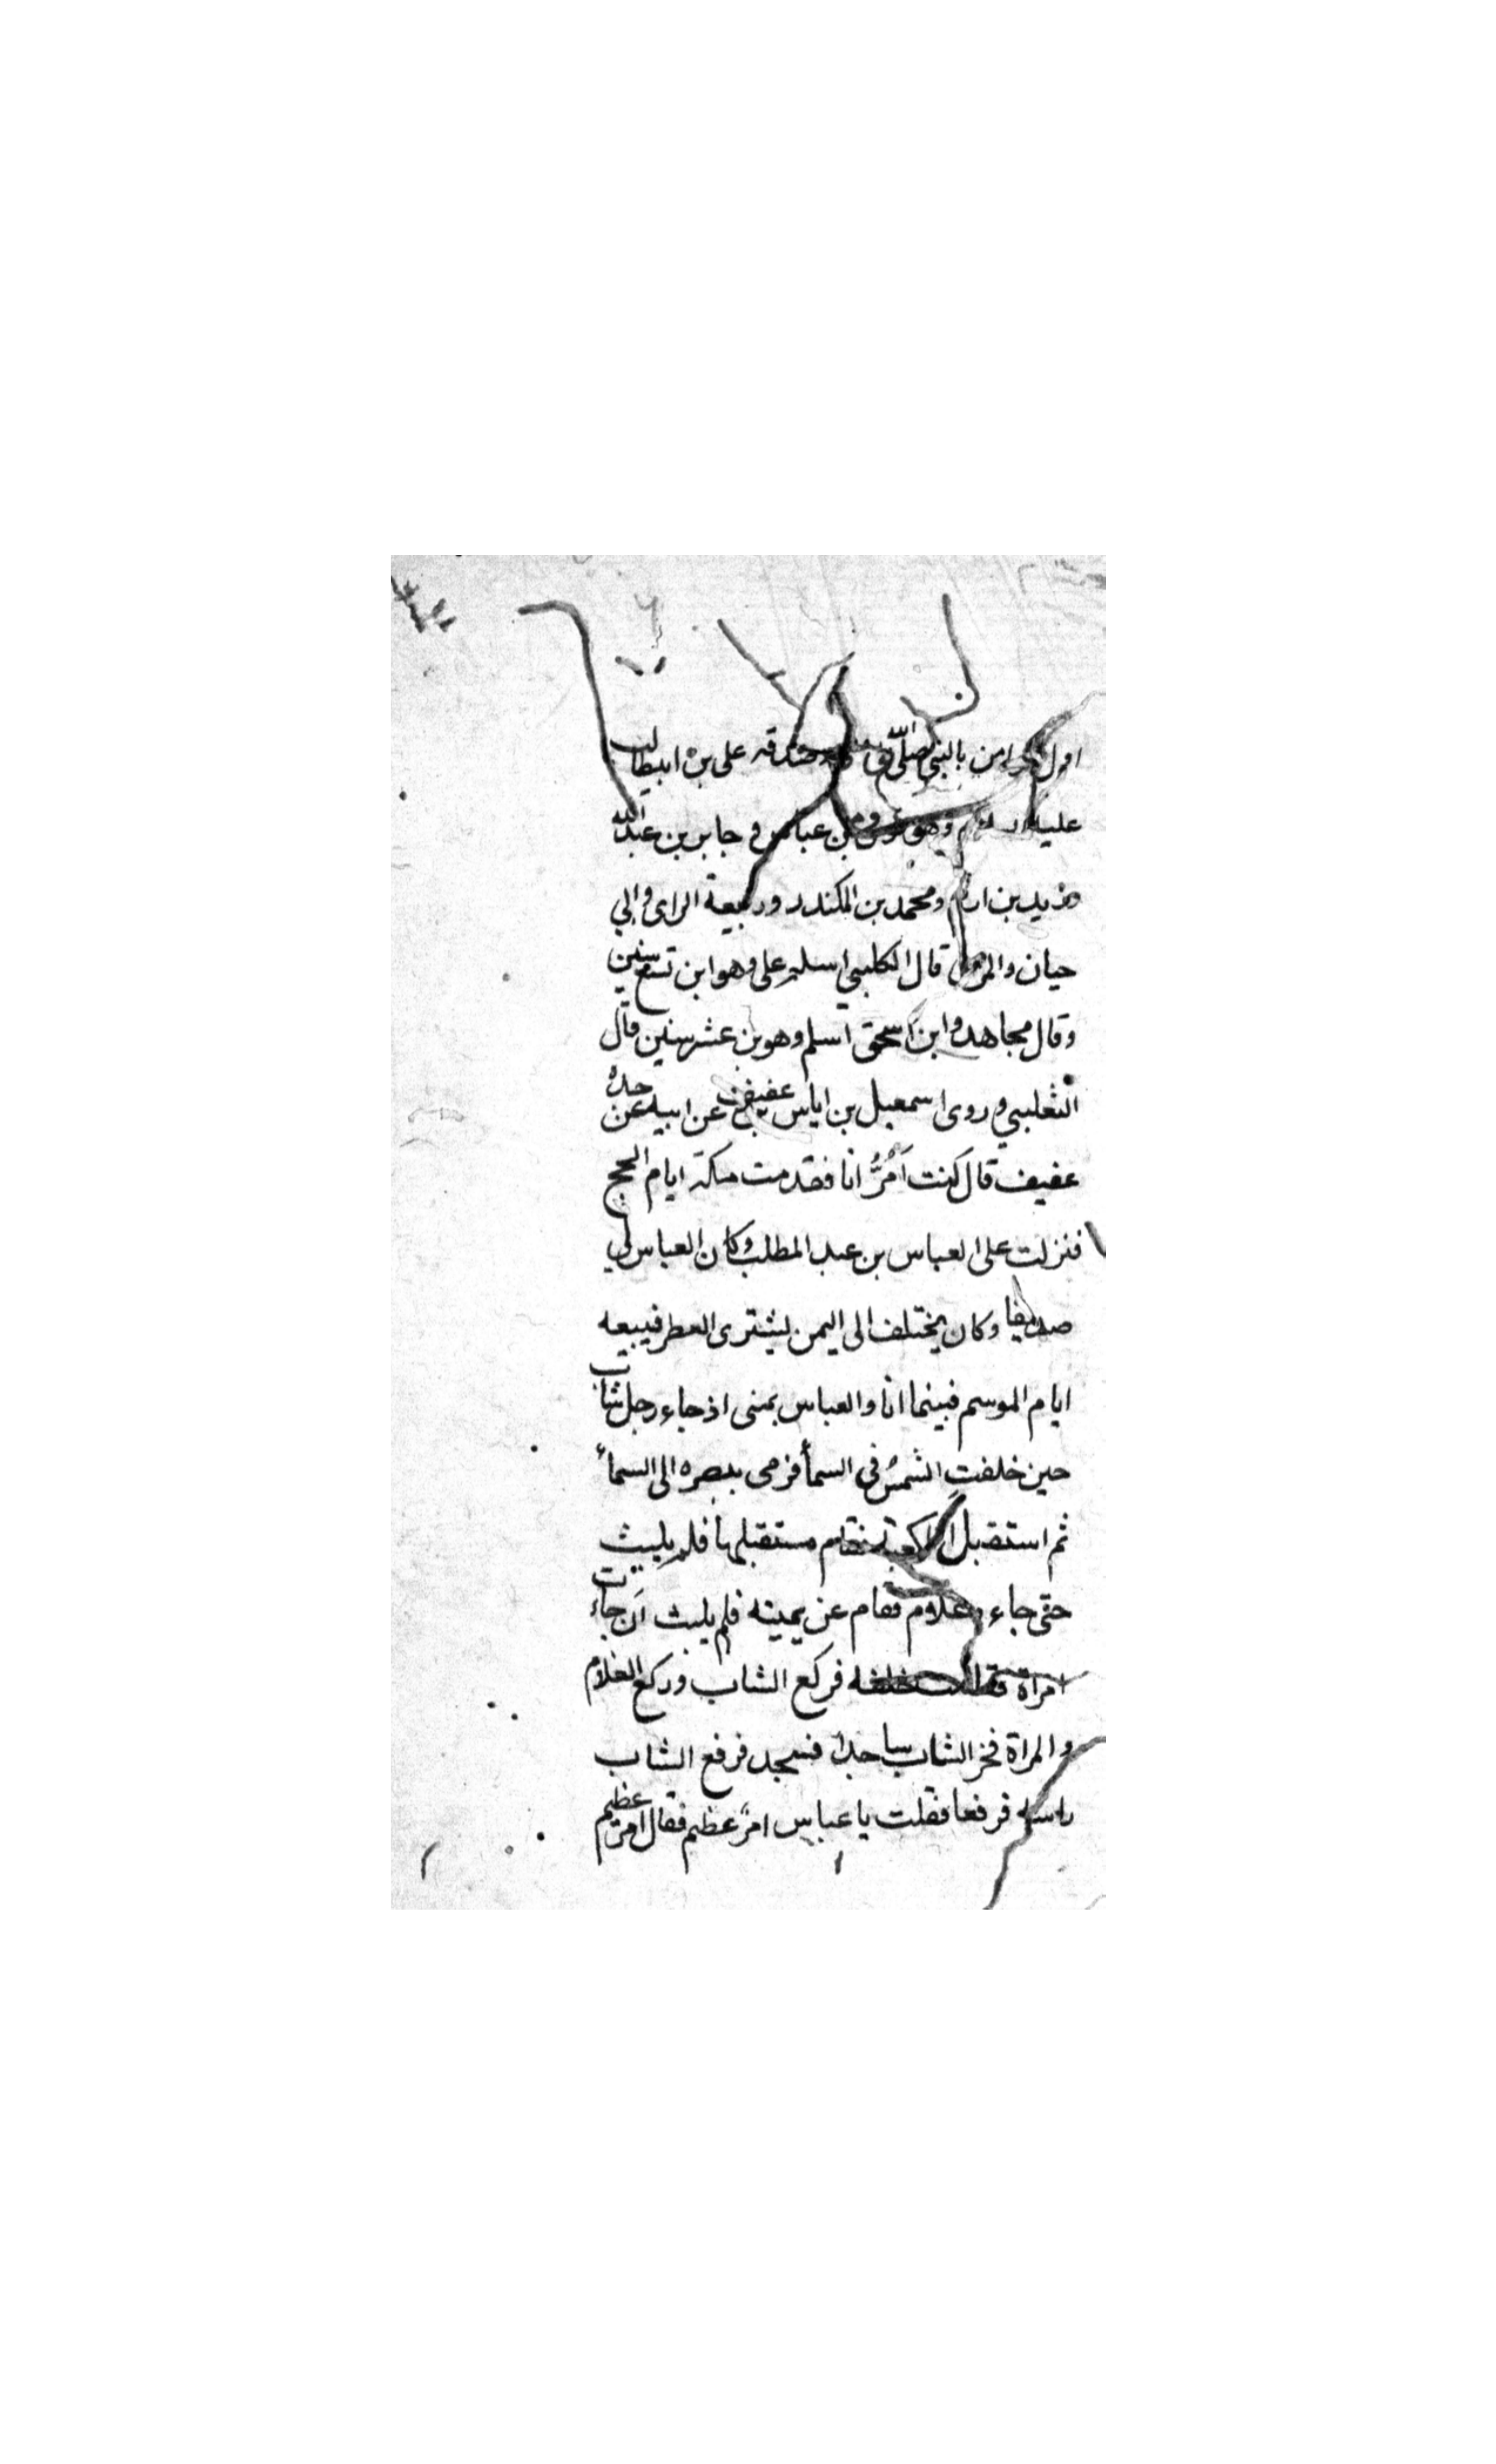 اول ذكر امن بالنبي صلى الله وصدقه على بن ابيطالب
عليه السلام وهو قول بن عباس و جابر بن عبدالله
وزيد بن ارقم ومحمد بن المكندر وربيعة الراى وابي
حيان والمزنى قال الكلبي اسلم على وهو ابن تسع سنين
وقال مجاهد وابن اسحق اسلم وهو بن عشر سنين قال
الثعلبي وروى اسمعيل بن اياس عفيف عن ابيه عن جده
عفيف قال كنت امرُّ انا فقدمت مكة ايام الحج
فنزلت على العباس بن عبد المطلب وكان العباس لي
صديقا وكان يختلف الى اليمن ليشترى العطر فيبيعه
ايام الموسم فبينما انا والعباس بمنى اذ جاء رجل شاب
حين خلفت الشمسُ في السمأ فرمى ببصره الى السمأ
ثم استقبل الكعبة فقام مستقبلها فلم يلبث
حتى جاء غلام فقام عن يمينه فلم يلبث ان جاءت
امراة فقامت خلفه فركع الشاب وركع الغلام
والمراة فخر الشاب ساجدا فسجد فرفع الشاب
راسه فرفعا فقلت يا عباس امرٌ عظيم فقال امرٌ عظيم